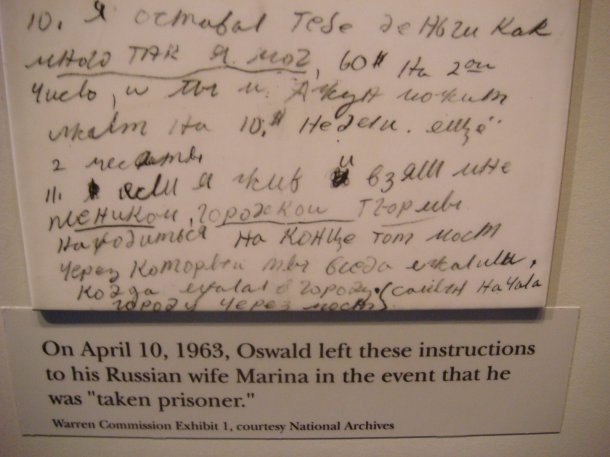 10. Я оставал тебе деньги как
много так я мог, 60$ на 2ои
число, и ты и. Джун можит
на 10.$ недели. ещё
2
11. если я жив и взяли мне
пленикои, городкои
находиться на конце тот мост
через мы всегда
когда в городу. начала
городу через
On April 10, 1963, Oswald left these instructions
to his Russian wife Marina in the event that he
was "taken prisoner."
Warren Commission Exhibit 1, courtesy National Archives